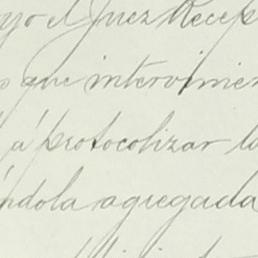 yo el Juez Recep
s que intervinie
a protocolizar lo
ndola agregada